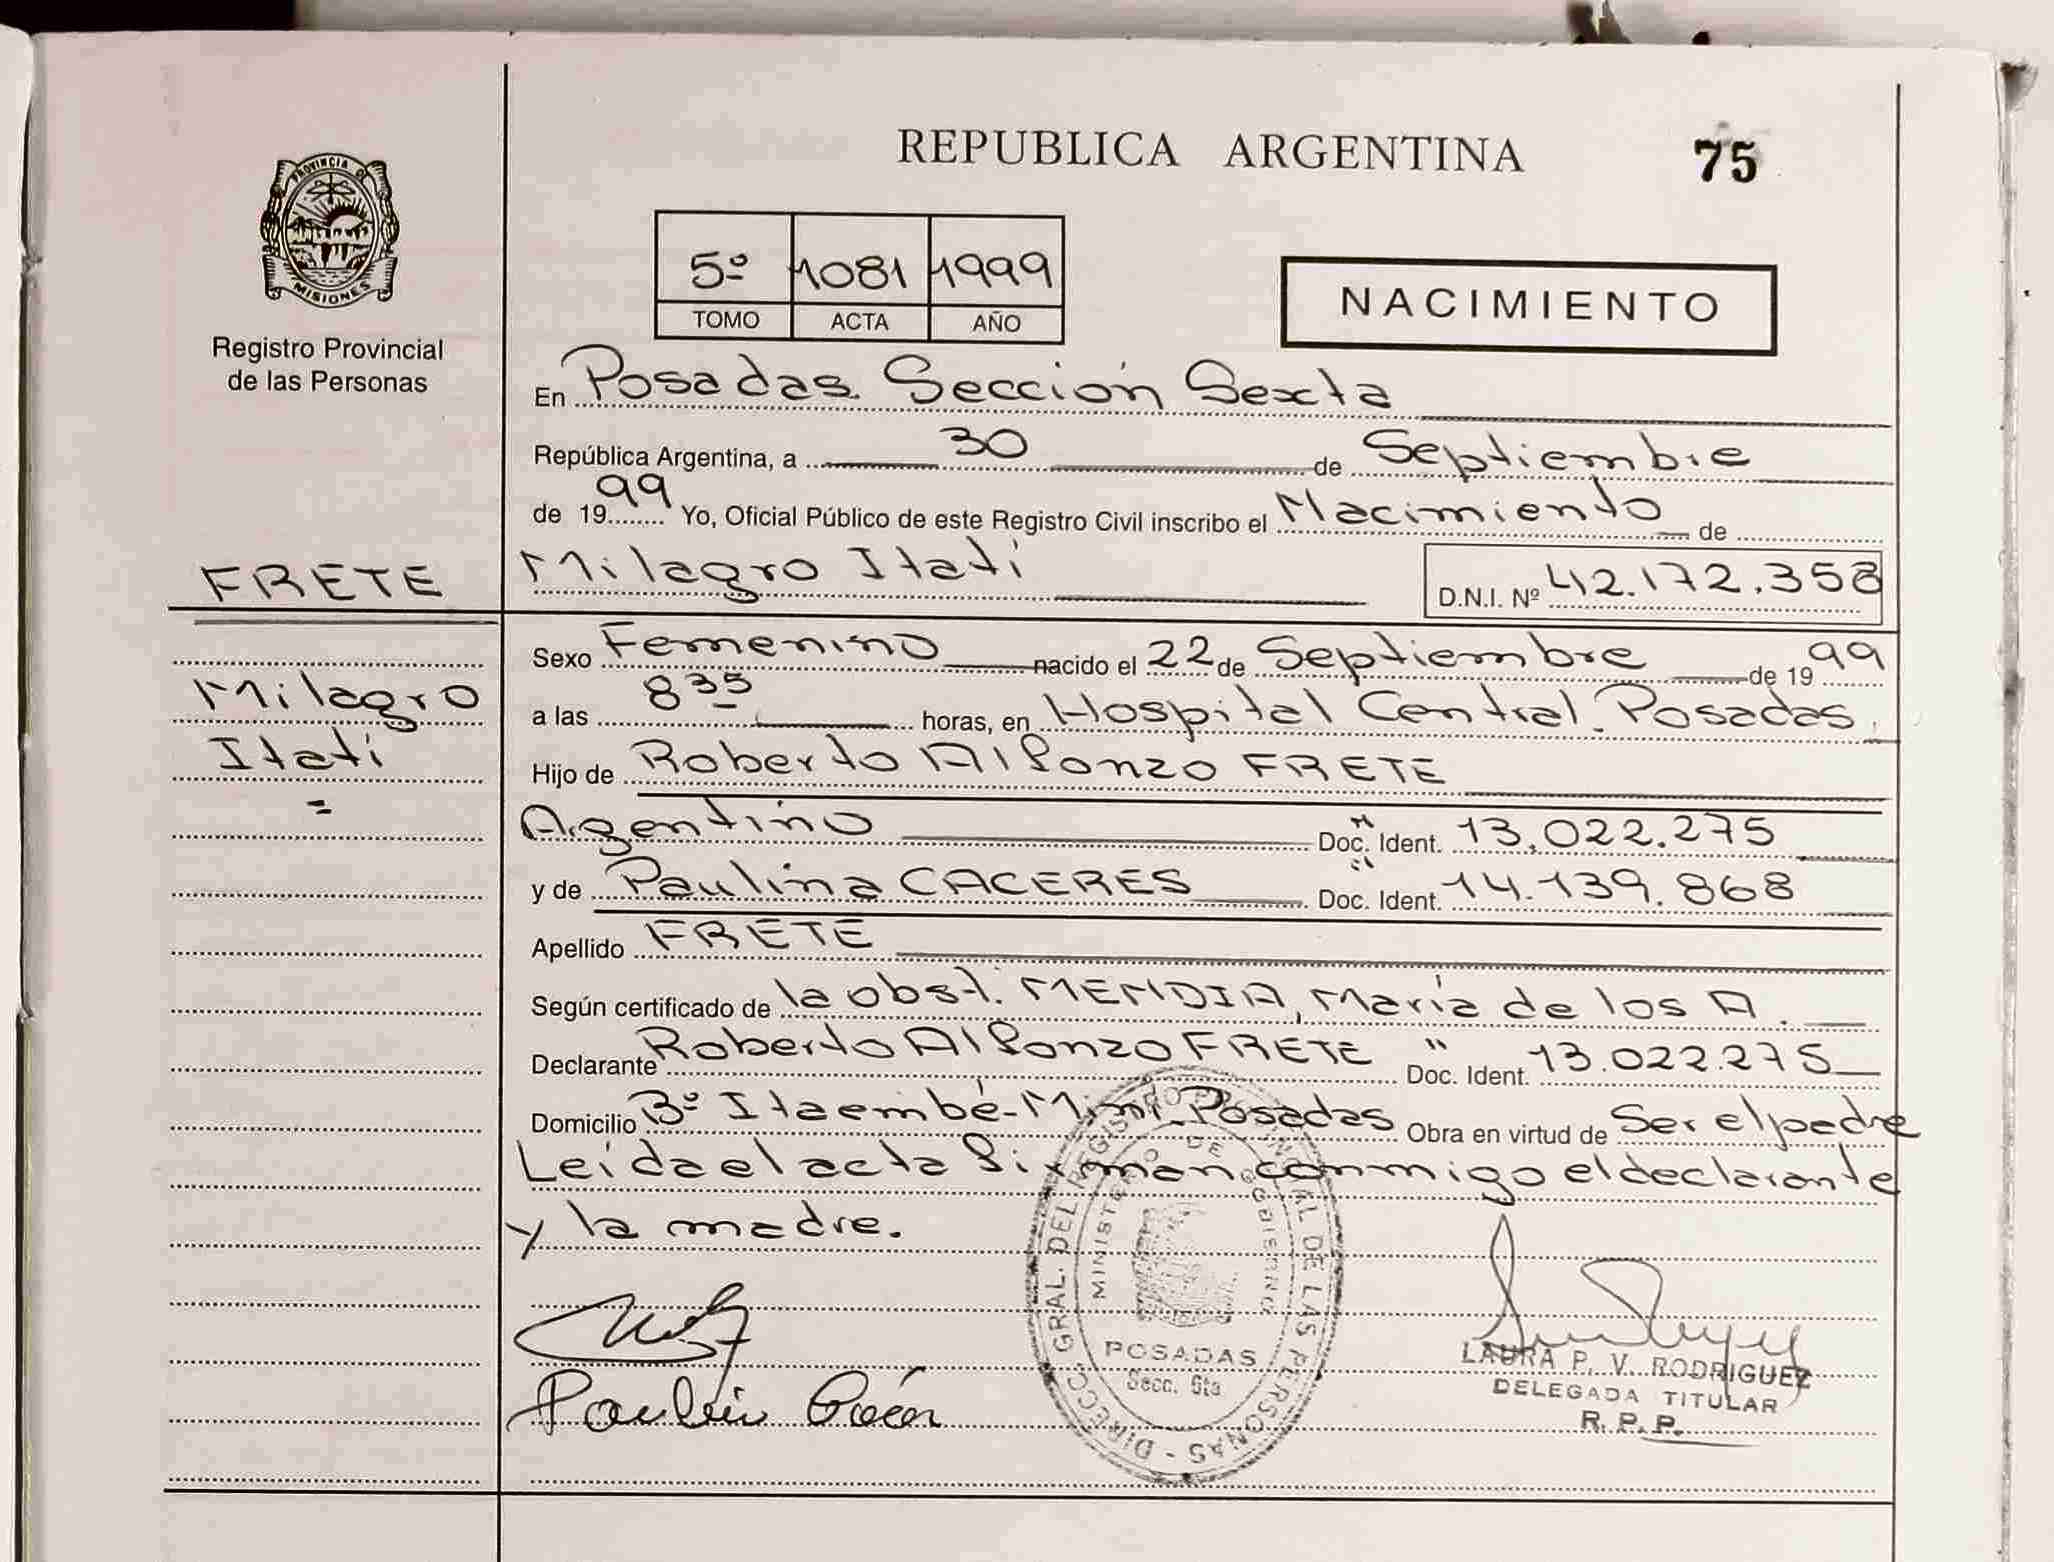 REPUBLICA ARGENTINA
75
PROVINCIA DE
MISIONES
Registro Provincial
de las Personas
5º 1081 1999
TOMO ACTA AÑO
NACIMIENTO
En Posadas. Sección Sexta
República Argentina, a 30 de Septiembre
de 1999 Yo, Oficial Público de este Registro Civil inscribo el Nacimiento de
FRETE
Milagro Itatí D.N.I. Nº 42.172.358
Milagro
Itatí
=
Sexo Femenino nacido el 22 de Septiembre de 1999
a las 8 35 horas, en Hospital Central. Posadas.
Hijo de Roberto Alfonzo FRETE
Argentino Doc. Ident. 13.022.275
y de Paulina CACERES Doc. Ident. 14.139.868
Apellido FRETE
Según certificado de la obst. MENDIA, María de los A.
Declarante Roberto Alfonzo FRETE Doc. Ident. 13.022.275
Domicilio Bº Itaembé-Miní Posadas Obra en virtud de Ser el padre
Leída el acta firman conmigo el declarante
y la madre.
DIRECC. GRAL. DEL REGISTRO PROVINCIAL DE LAS PERSONAS -
MINISTERIO DE GOBIERNO
POSADAS
Secc. 6ta
LAURA P. V. RODRIGUEZ
DELEGADA TITULAR
R. P. P.